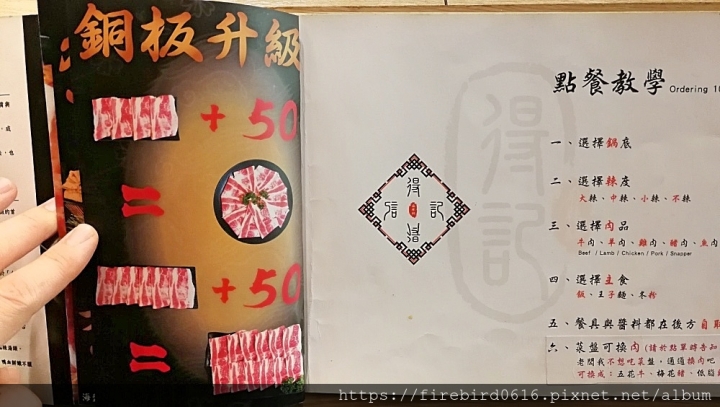 銅板升級
+50
=
+50
=
得記
點餐教學 Ordering 10
一、選擇鍋底
二、選擇辣度
大辣、中辣、小辣、不辣
三、選擇肉品
牛肉、羊肉、雞肉、豬肉、魚肉
Beef / Lamb / Chicken / Pork / Snapper
四、選擇主食
飯、王子麵、冬粉
五、餐具與醬料都在後方自取
六、菜盤可換肉 (請於點單時告知
老闆我不想吃菜盤，通通換肉吧
可換成：五花牛、梅花豬、低脂
海
https://firebird0616.pixnet.net/album